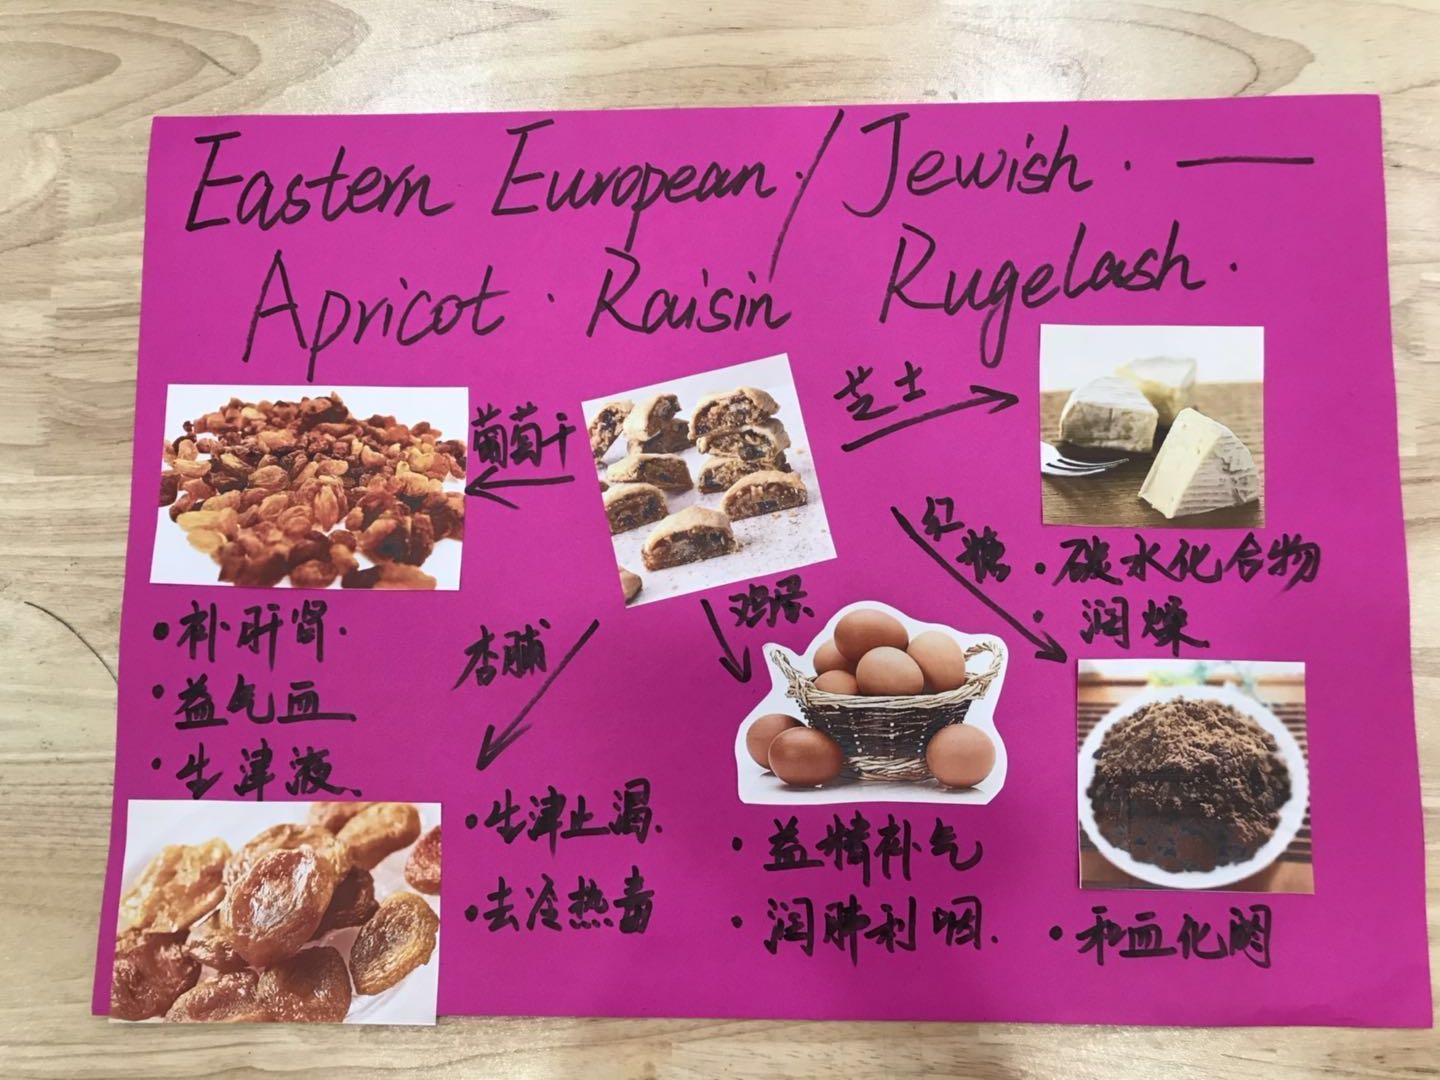 Eastern European / Jewish. —
Apricot · Raisin Rugelash.
葡萄干
芝士
红糖
杏脯
鸡蛋
·补肝肾.
·益气血
·生津液.
·生津止渴.
·去冷热毒
·益精补气
·润肺利咽.
·碳水化合物
·润燥
·和血化